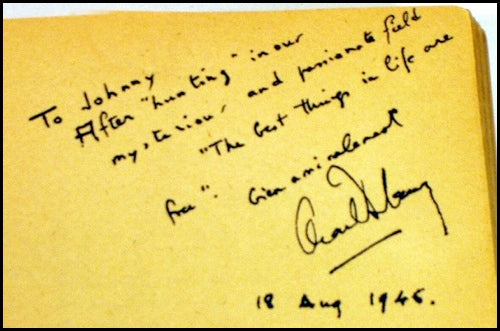 To Johnny
After "hunting" in our
mysterious and passionate field
"The best things in life are
free". bien amicalement
18 Aug 1946.